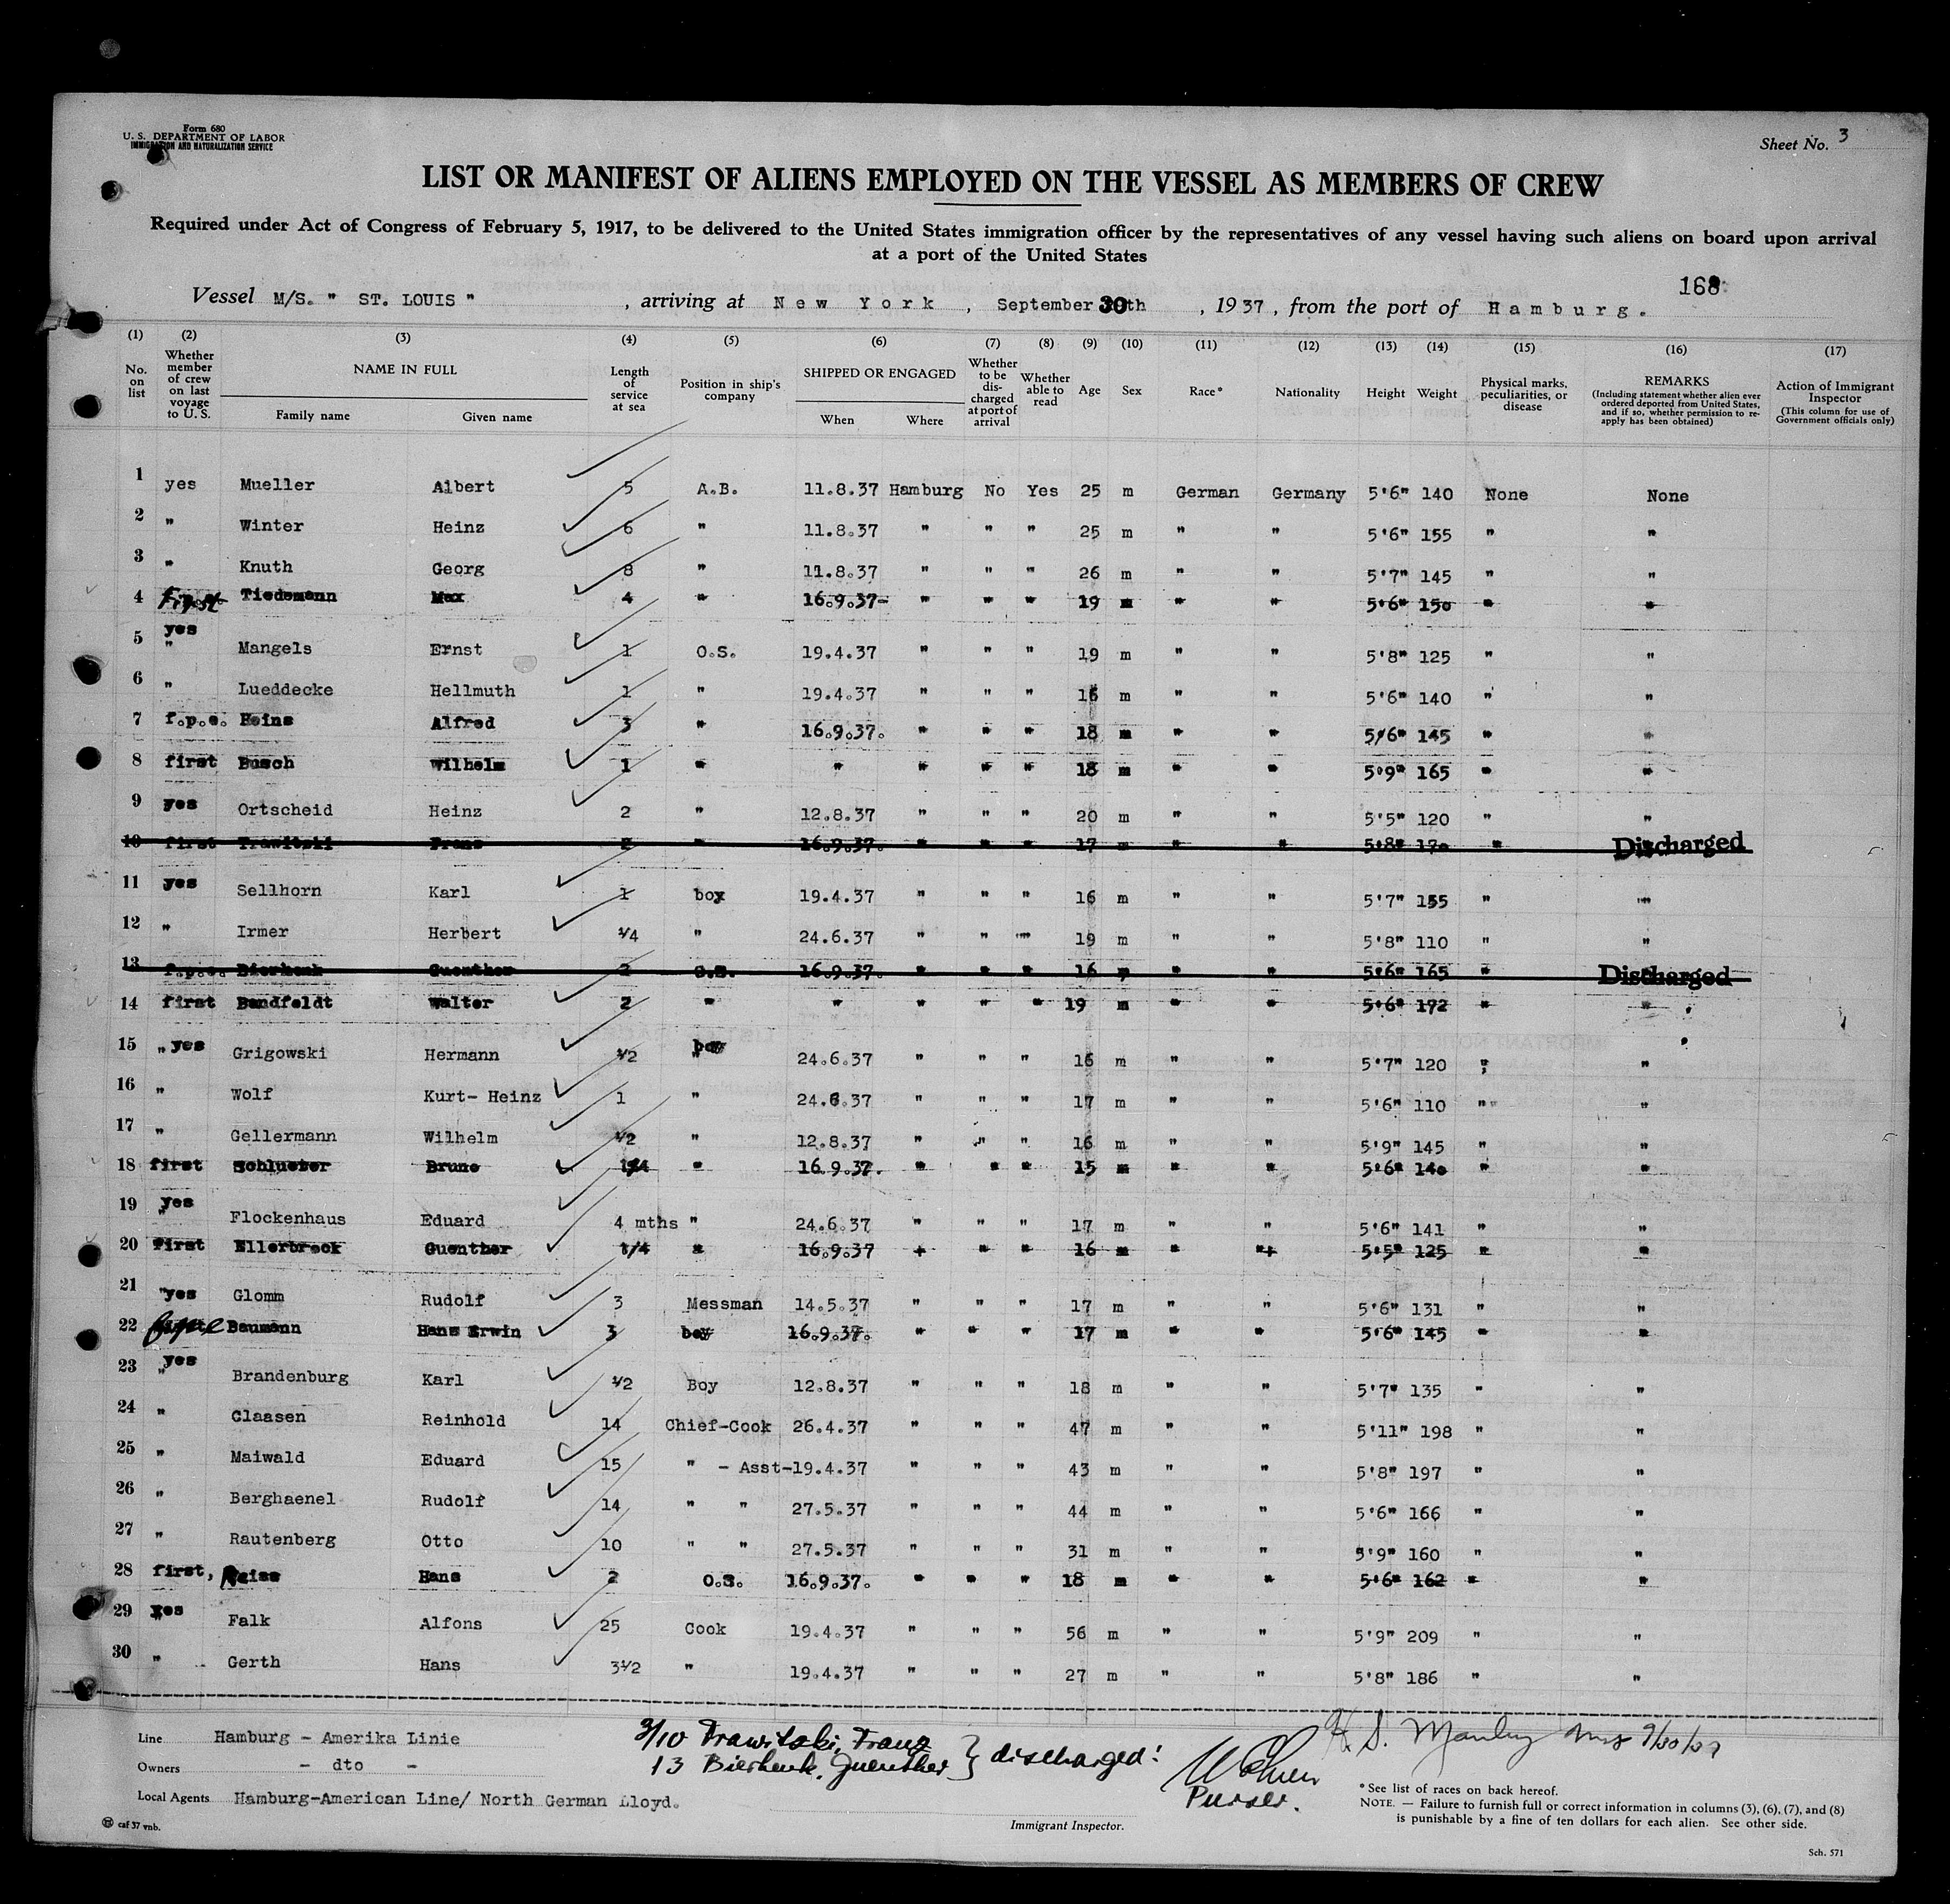 Form 680
U. S. DEPARTMENT OF LABOR
IMMIGRATION AND NATURALIZATION SERVICE
Sheet No. 3
LIST OR MANIFEST OF ALIENS EMPLOYED ON THE VESSEL AS MEMBERS OF CREW
Required under Act of Congress of February 5, 1917, to be delivered to the United States immigration officer by the representatives of any vessel having such aliens on board upon arrival
at a port of the United States
168
Vessel M/S. " ST. LOUIS " , arriving at New York , September 30th , 1937, from the port of Hamburg.
(1) (2) (3) (4) (5) (6) (7) (8) (9) (10) (11) (12) (13) (14) (15) (16) (17)
No. on list Whether member of crew on last voyage to U. S. NAME IN FULL Family name Given name Length of service at sea Position in ship's company SHIPPED OR ENGAGED When Where Whether to be dis-charged at port of arrival Whether able to read Age Sex Race* Nationality Height Weight Physical marks, peculiarities, or disease REMARKS (Including statement whether alien ever ordered deported from United States, and if so, whether permission to re-apply has been obtained) Action of Immigrant Inspector (This column for use of Government officials only)
1 yes Mueller Albert 5 A.B. 11.8.37 Hamburg No Yes 25 m German Germany 5'6" 140 None None
2 " Winter Heinz 6 " 11.8.37 " " " 25 m " " 5'6" 155 " "
3 " Knuth Georg 8 " 11.8.37 " " " 26 m " " 5'7" 145 " "
4 First Tiedemann Max 4 " 16.9.37- " " " 19 m " " 5'6" 150 " "
5 yes " Mangels Ernst 1 O.S. 19.4.37 " " " 19 m " " 5'8" 125 " "
6 " Lueddecke Hellmuth 1 " 19.4.37 " " " 16 m " " 5'6" 140 " "
7 f.p.e. Heins Alfred 3 " 16.9.37. " " " 18 m " " 5'6" 145 " "
8 first Busch Wilhelm 1 " " " " " 18 m " " 5'9" 165 " "
9 yes Ortscheid Heinz 2 " 12.8.37 " " " 20 m " " 5'5" 120 " "
10 first Trawitzki Franz 2 " 16.9.37. " " " 17 m " " 5'8" 170 " Discharged
11 yes Sellhorn Karl 1 boy 19.4.37 " " " 16 m " " 5'7" 155 " "
12 " Irmer Herbert 1/4 " 24.6.37 " " " 19 m " " 5'8" 110 " "
13 f.p.e. Bierhenk Guenther 2 O.S. 16.9.37. " " " 16 m " " 5'6" 165 " Discharged
14 first Bandfeldt Walter 2 " " " " " 19 m " " 5'6" 172 " "
15 " yes Grigowski Hermann 1/2 boy 24.6.37 " " " 16 m " " 5'7" 120 " "
16 " Wolf Kurt- Heinz 1 " 24.6.37 " " " 17 m " " 5'6" 110 " "
17 " Gellermann Wilhelm 1/2 " 12.8.37 " " " 16 m " " 5'9" 145 " "
18 first Schlueter Bruno 1/4 " 16.9.37. " " " 15 m " " 5'6" 140 " "
19 yes " Flockenhaus Eduard 4 mths " 24.6.37 " " " 17 m " " 5'6" 141 " "
20 first Ellerbrock Guenther 1/4 " 16.9.37 " " " 16 m " " 5'5" 125 " "
21 " yes Glomm Rudolf 3 Messman 14.5.37 " " " 17 m " " 5'6" 131 " "
22 Baumann Hans Erwin 3 boy 16.9.37. " " " 17 m " " 5'6" 145 " "
23 yes " Brandenburg Karl 1/2 Boy 12.8.37 " " " 18 m " " 5'7" 135 " "
24 " Claasen Reinhold 14 Chief-Cook 26.4.37 " " " 47 m " " 5'11" 198 " "
25 " Maiwald Eduard 15 " - Asst-19.4.37 " " " 43 m " " 5'8" 197 " "
26 " Berghaenel Rudolf 14 " " 27.5.37 " " " 44 m " " 5'6" 166 " "
27 " Rautenberg Otto 10 " " 27.5.37 " " " 31 m " " 5'9" 160 " "
28 first, Hans 2 O.S. 16.9.37. " " " 18 m " " 5'6" 162 " "
29 yes Falk Alfons 25 Cook 19.4.37 " " " 56 m " " 5'9" 209 " "
30 " Gerth Hans 3 1/2 " 19.4.37 " " " 27 m " " 5'8" 186 " "
Line Hamburg - Amerika Linie
Owners - dto -
Local Agents Hamburg-American Line/ North German Lloyd.
caf 37 vnb.
3/10 Trawitzki, Franz
13 Bierhenk, Guenther } discharged!
Purser.
H. S. Manley 9/30/37
Immigrant Inspector.
*See list of races on back hereof.
NOTE. — Failure to furnish full or correct information in columns (3), (6), (7), and (8)
is punishable by a fine of ten dollars for each alien. See other side.
Sch. 571